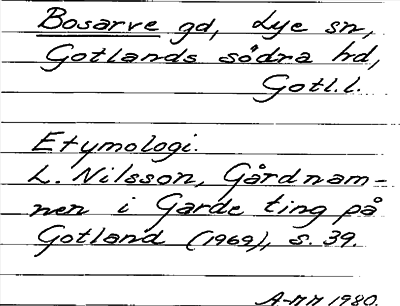 Bosarve gd, Lye sn,
Gotlands södra hd,
Gotl.l.
Etymologi.
L. Nilsson, Gårdnam-
nen i Garde ting på
Gotland (1969), s. 39.
A-NN 1980.